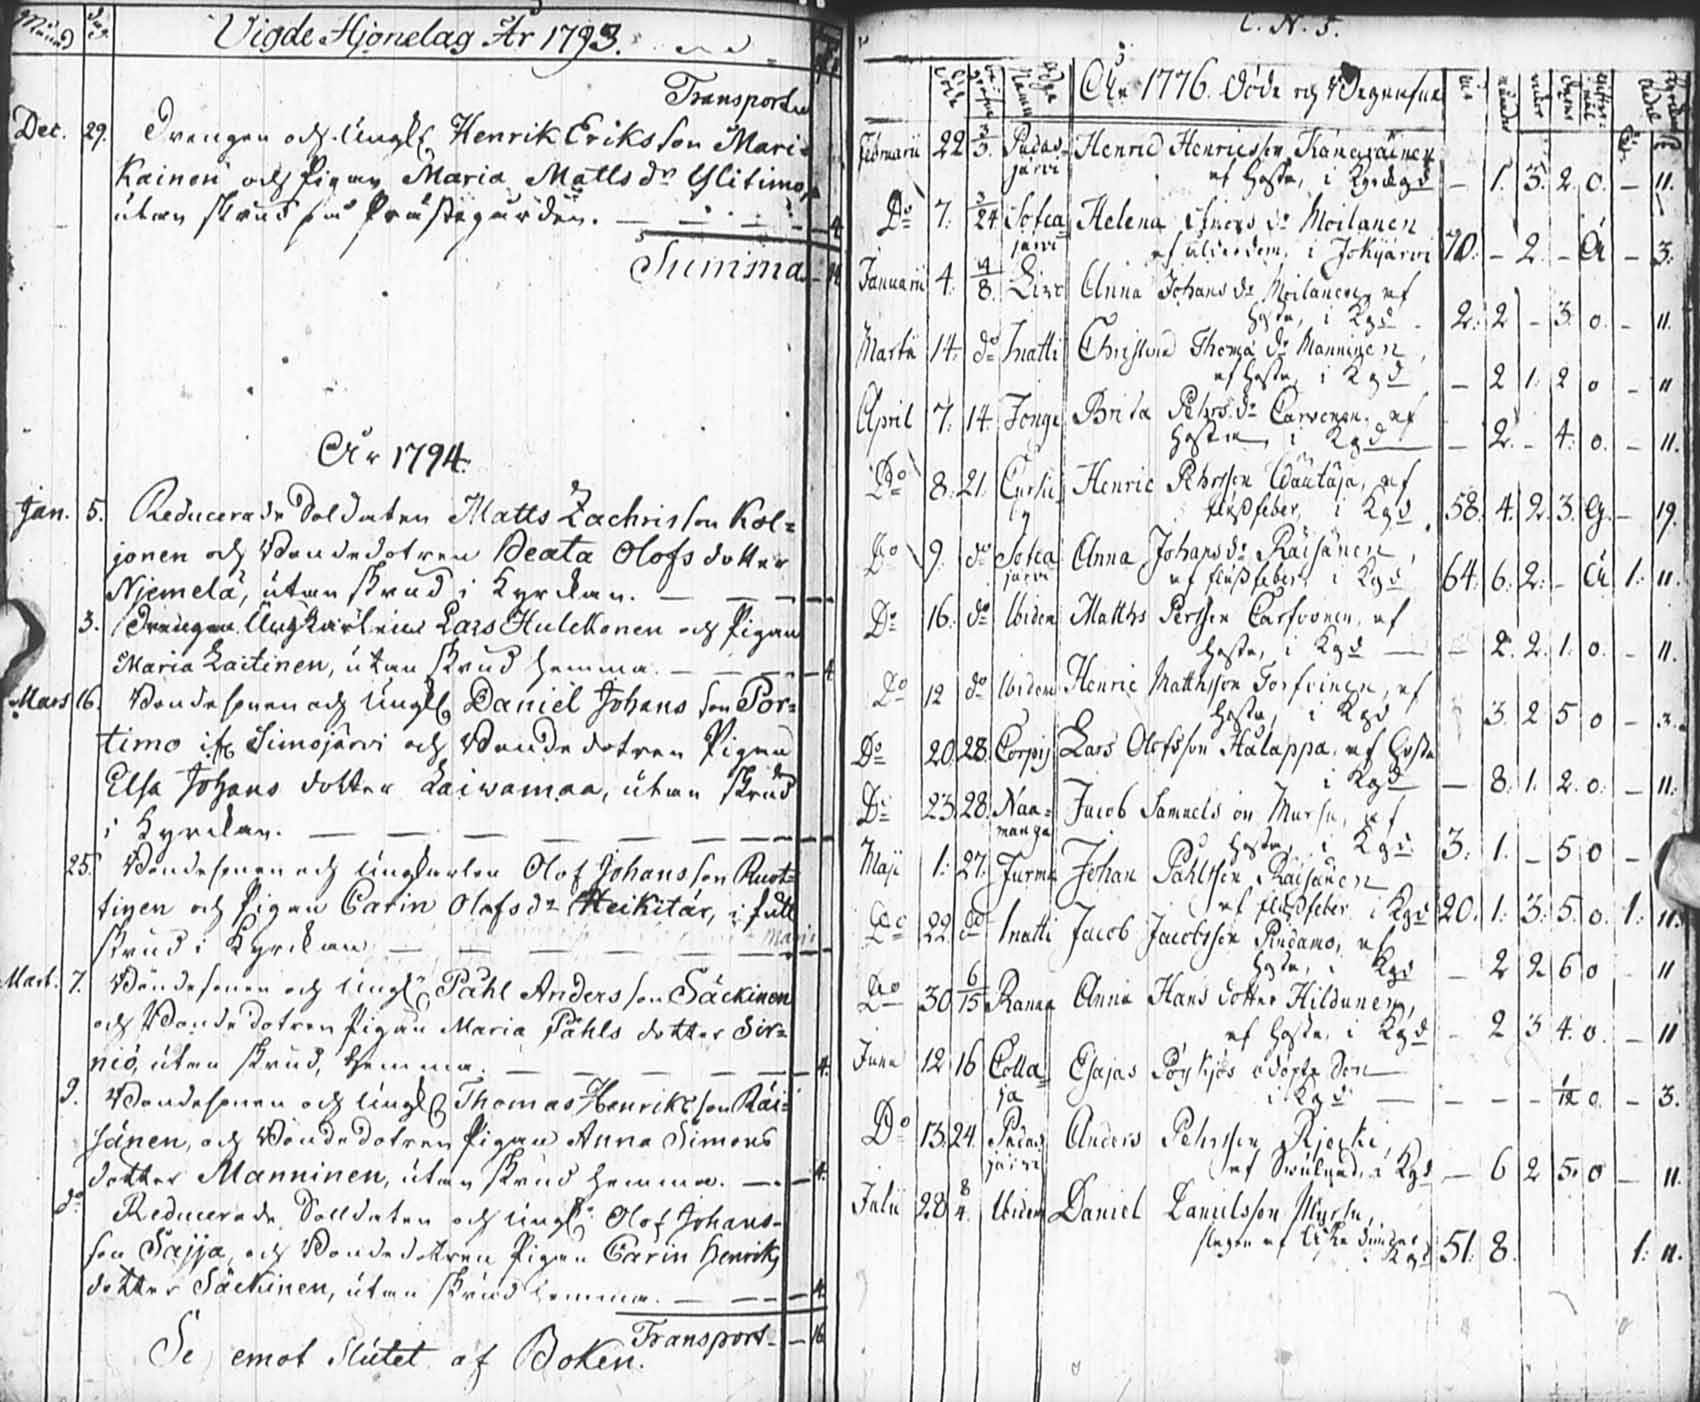 Månad Dag Vigde Hjonelag År 1793.
Transport
Dec. 29. Drengen och Ungk. Henrik Eriksson Mari-
kainen och Pigan Maria Mattsdr Ylitimo,
utan skrud på Prästegården. — 4
Summa
År 1794.
Jan. 5. Reducerade Soldaten Matts Zachrisson Kol=
jonen och Bondedotren Beata Olofs dotter
Njemelä, utan skrud i Kyrckan. —
3. Drengen Ungkarlen Lars Hulckonen och Pigan
Maria Laitinen, utan skrud hemma. — 4
Mars 16. Bondesonen och Ungk. Daniel Johans son Por=
timo Simojärvi och Bondedotren Pigan
Elsa Johans dotter Laiwamaa, utan skrud
i Kyrckan. —
25. Bondesonen och Ungkarlen Olof Johansson Ruot=
tinen och Pigan Carin Olofs dr Heikitär, i full
skrud i Kyrckan —
Mart. 7. Bondesonen och Ungk. Påhl Andersson Säckinen
och Bondedotren Pigan Maria Påhls dotter Sir=
niö, utan skrud, hemma. — 4.
9. Bondesonen och Ungk. Thomas Henriksson Räi=
sänen, och Bondedotren Pigan Anna Simons
dotter Manninen, utan skrud hemma. — 4.
do Reducerade Solldaten och Ungk. Olof Johans=
son Sajja, och Bondedotren Pigan Carin Henriks
dotter Säckinen, utan skrud hemma. — 4
Transport — 16
Se emot slutet af Boken.
C. N. 5.
År 1776. Döde och Begrafne
Februarii 22 Pudas- Henric Henricsson
järvi af Hosta, i Kyrckogd — 1. 3. 2. 0. — 11.
Do 7. 3/24 Sotca= Helena Moilanen
järvi af ålderdom, i Jokijärvi 70. — 2. — Ä — 3.
Januarii 4. 4/8. Anna Johans dr Moilanen, af
Hosta, i Kgd 2. 2 — 3. 0. — 11.
Martii 14. do Inatti Christina Thomæ dr Manninen,
af Hosta, i Kgd — 2 1. 2 0 — 11
April 7. 14. Jonge Brita Pehrs dr Carvonen, af
Hosta, i Kgd — 2. — 4. 0. — 11.
Do 8. 21. Henric Pehrsson af
flussfeber, i Kgd 58. 4. 2. 3. G. — 19.
Do 9. do Sotca Anna Johans dr Räisänen,
järvi af flussfeber, i Kgd 64. 6. 2. — Ä 1. 11.
Do 16. do Ibidem Matths Persson Carfvonen, af
Hosta, i Kgd — 2. 2. 1. 0. — 11.
Do 12 do Ibidem Henric Matthsson Torfvinen, af
Hosta, i Kgd 3. 2 5 0 — 3.
Do 20. 28. Corpis Lars Olofsson Halappa, af Hosta
i Kgd — 8. 1. 2. 0. — 11.
Do 23. 28. Naa= Jacob Samuelsson Mursu, af
manga Hosta, i Kgd. 3. 1. — 5 0 —
Maji 1. 27. Jurmu Johan Påhlsson Räisänen
af flussfeber i Kgd 20. 1. 3. 5. 0. 1. 11.
Do 22 do Inatti Jacob Jacobsson Pindamo, af
Hosta, i Kgd — 2 2 6 0 — 11
Do 30 6/15 Ranua Anna Hans dotter Hildunen,
af Hosta, i Kgd — 2 3 4. 0. — 11
Junii 12 16 Colla= Esajas odöpte Son
ja i Kgd — — — 1/12 0. — 3.
Do 13. 24. Pudas Anders Pehrsson
järvi af i Kgd — 6 2 5. 0 — 11.
Julii 28 8/4. Ibidem Daniel Danielsson
slagen af i Kgd 51. 8. 1. 11.